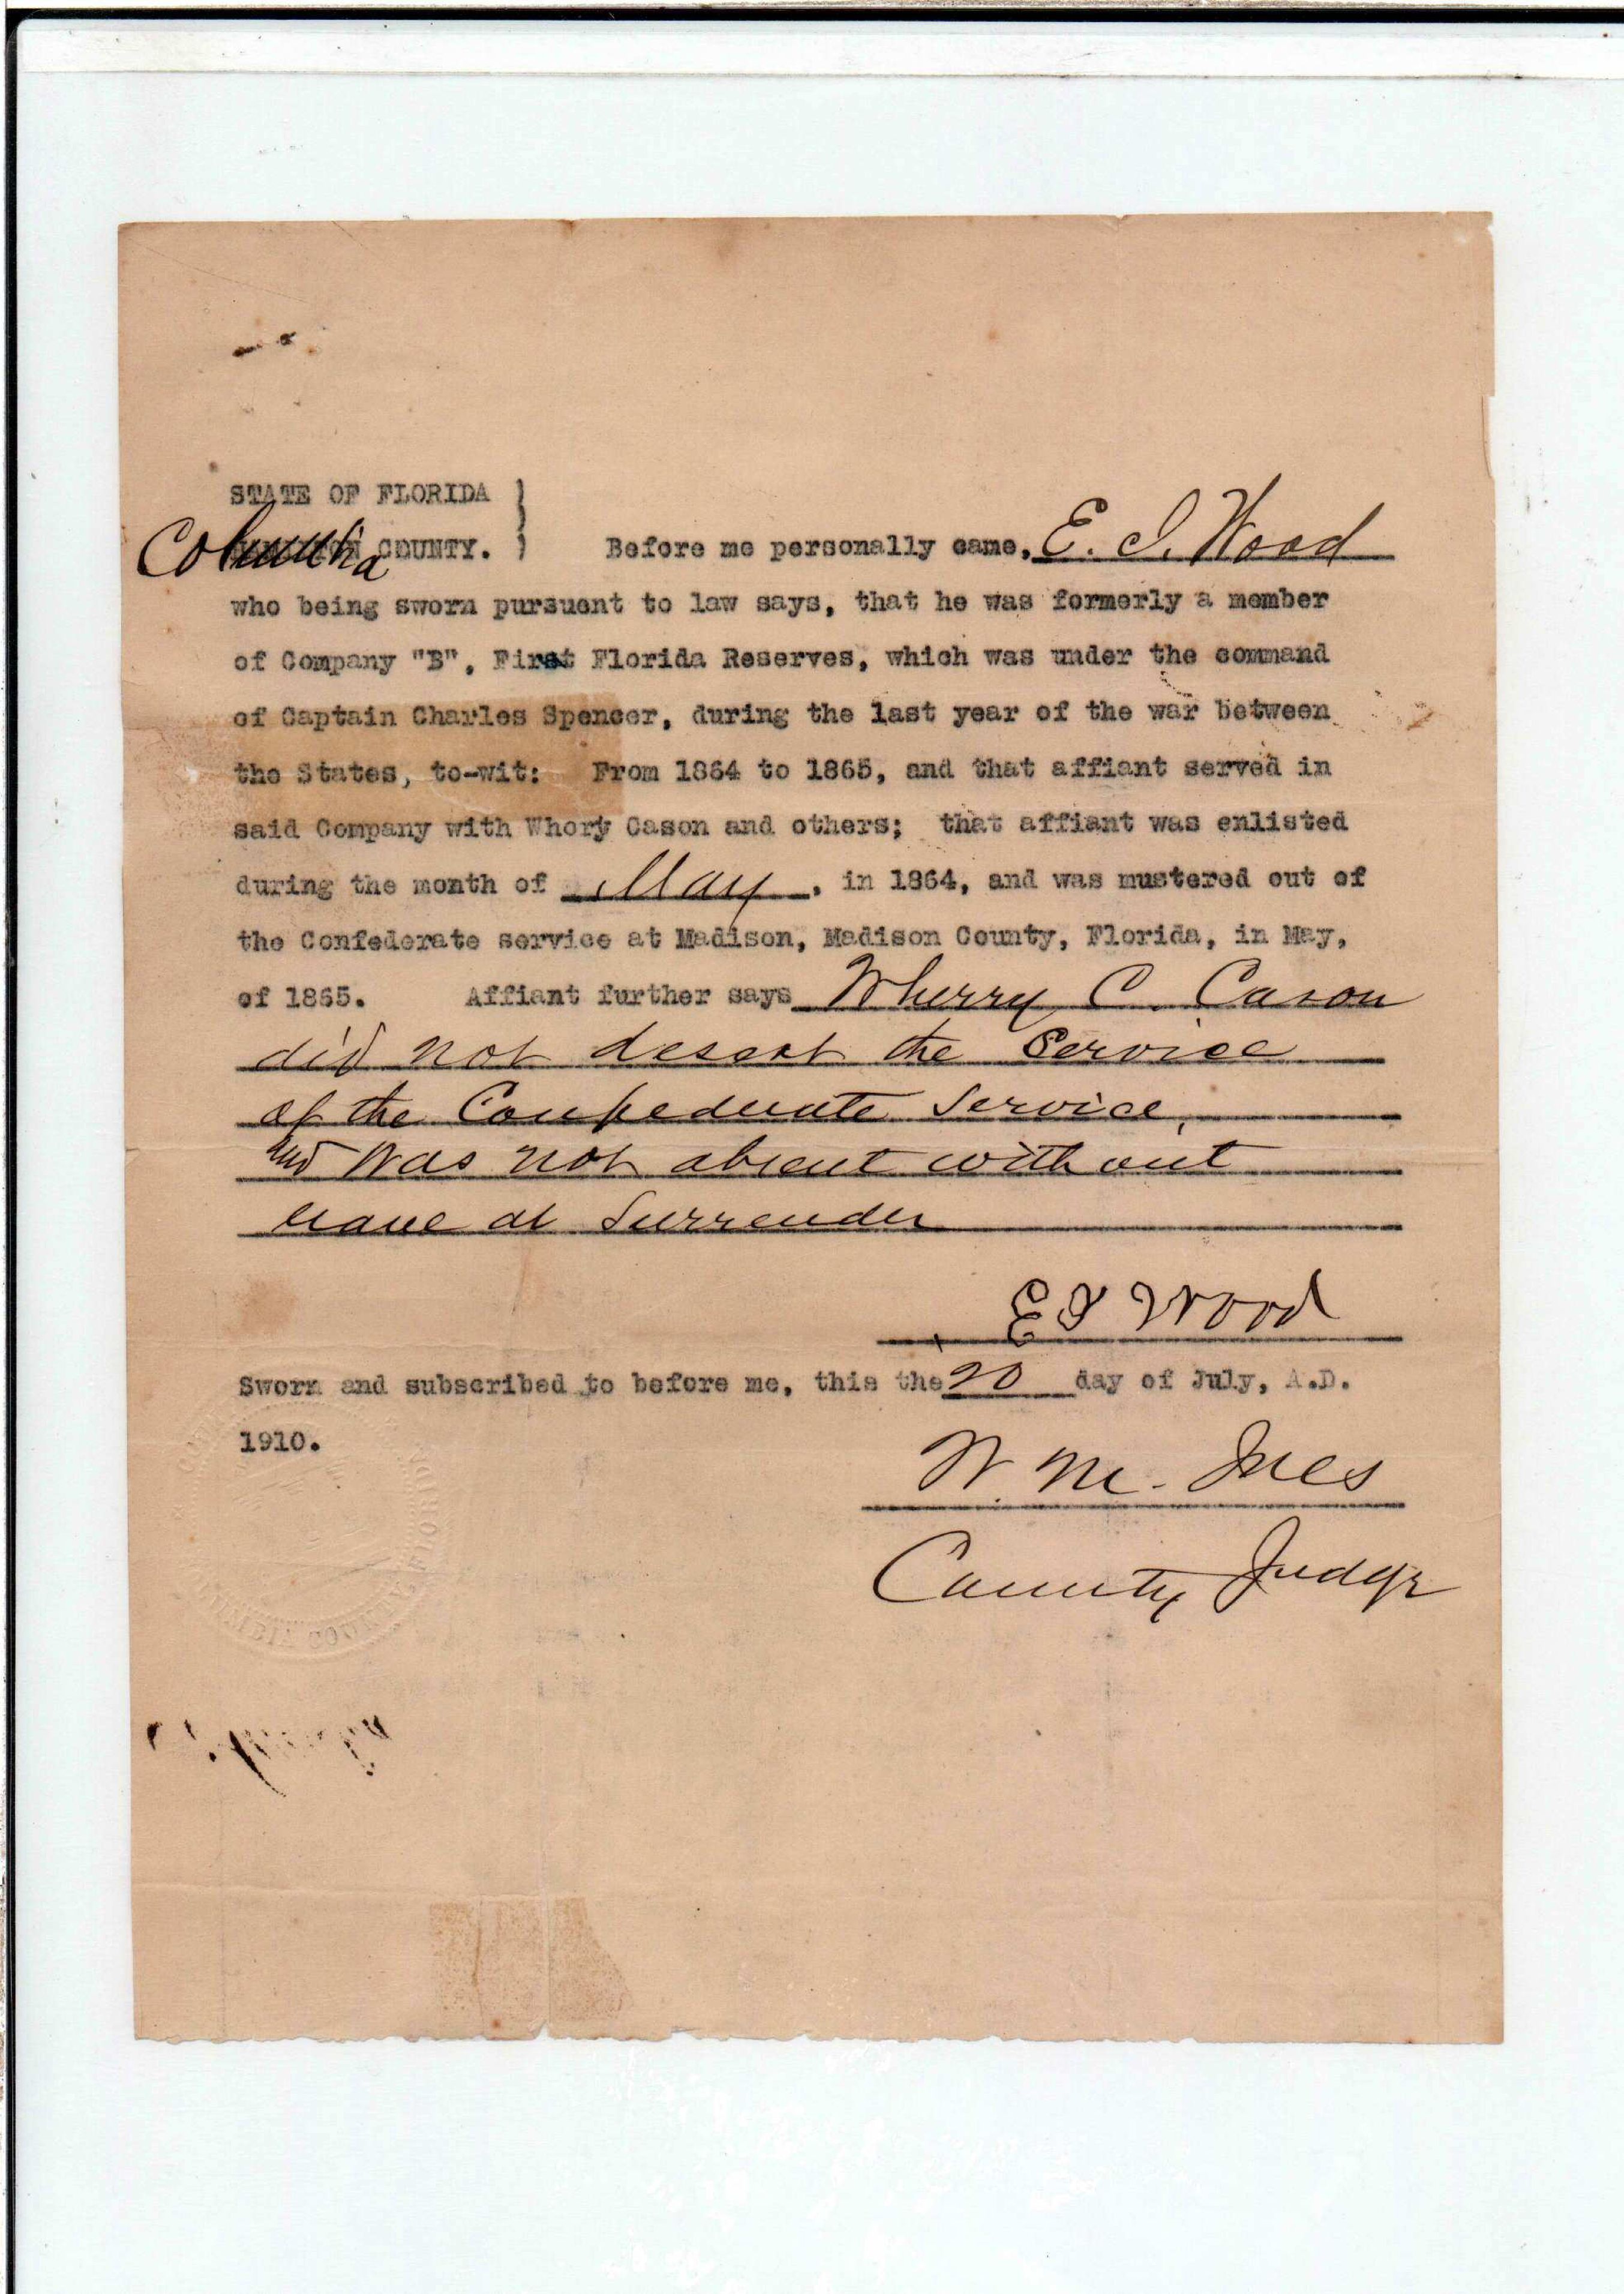 STATE OF FLORIDA )
Columbia COUNTY. ) Before me personally came, E. I. Wood
who being sworn pursuant to law says, that he was formerly a member
of Company "B", First Florida Reserves, which was under the command
of Captain Charles Spencer, during the last year of the war between
the States, to-wit: From 1864 to 1865, and that affiant served in
said Company with Whory Cason and others; that affiant was enlisted
during the month of May, in 1864, and was mustered out of
the Confederate service at Madison, Madison County, Florida, in May,
of 1865. Affiant further says Wherry C. Cason
did not desert the Service
of the Confederate Service,
and was not absent without
leave at Surrender
E I Wood
Sworn and subscribed to before me, this the 20 day of July, A.D.
1910.
W. M. Ives
County Judge
COLUMBIA COUNTY, FLORIDA